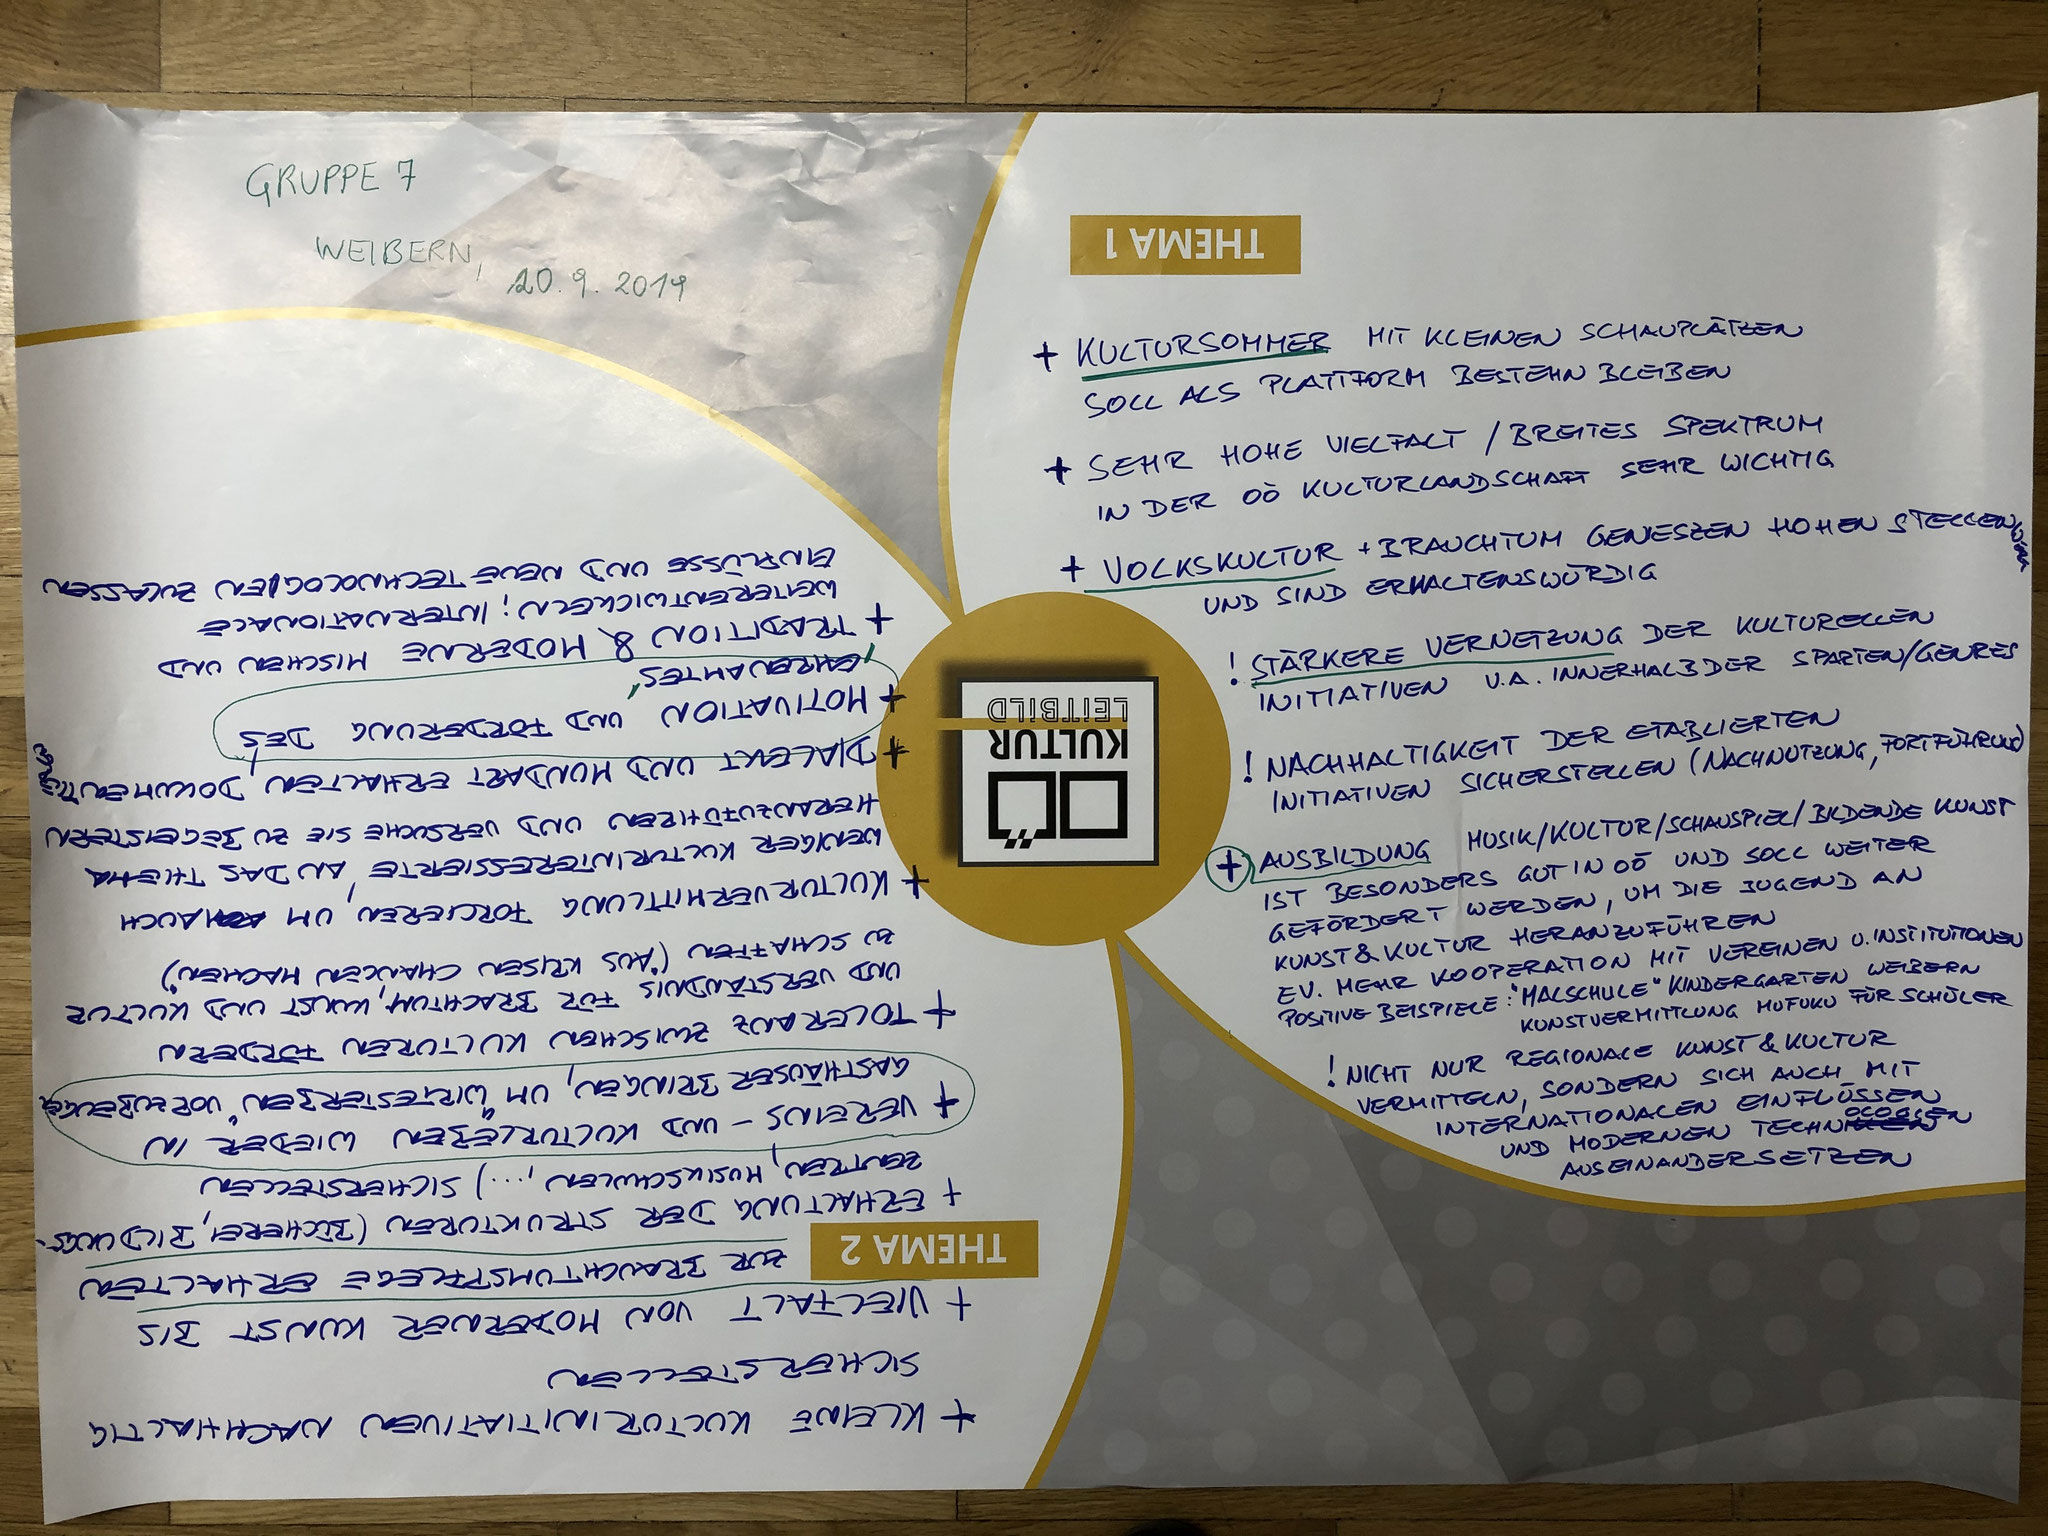 GRUPPE 7
WEIBERN,
20.9.2019
THEMA 1
+ KULTURSOMMER MIT KLEINEN SCHAUPLÄTZEN
SOLL ALS PLATTFORM BESTEHN BLEIBEN
+ SEHR HOHE VIELFALT / BREITES SPEKTRUM
IN DER OÖ KULTURLANDSCHAFT SEHR WICHTIG
+ VOLKSKULTUR + BRAUCHTUM GENIESZEN HOHEN STELLEN
UND SIND ERHALTENSWÜRDIG
! STÄRKERE VERNETZUNG DER KULTURELLEN
INITIATIVEN V.A. INNERHALB DER SPARTEN/GENRES
! NACHHALTIGKEIT DER ETABLIERTEN
INITIATIVEN SICHERSTELLEN (NACHNUTZUNG, FORTFÜHRUNG)
+ AUSBILDUNG MUSIK/KULTUR/SCHAUSPIEL/BILDENDE KUNST
IST BESONDERS GUT IN OÖ UND SOLL WEITER
GEFÖRDERT WERDEN, UM DIE JUGEND AN
KUNST & KULTUR HERANZUFÜHREN
EV. MEHR KOOPERATION MIT VEREINEN U. INSTITUTIONEN
POSITIVE BEISPIELE: "MALSCHULE" KINDERGARTEN WEIBERN
KUNSTVERMITTLUNG MUFUKU FÜR SCHÜLER
! NICHT NUR REGIONALE KUNST & KULTUR
VERMITTELN, SONDERN SICH AUCH MIT
INTERNATIONALEN EINFLÜSSEN
UND MODERNEN TECHNOLOGIEN
AUSEINANDERSETZEN
OÖ
KULTUR
LEITBILD
+ KLEINE KULTURINITIATIVEN NACHHALTIG
SICHERSTELLEN
+ VIELFALT VON MODERNER KUNST BIS
ZUR BRAUCHTUMSPFLEGE ERHALTEN
THEMA 2
+ ERHALTUNG DER STRUKTUREN (BÜCHEREI, BILDUNGS-
ZENTREN, MUSIKSCHULEN, ...) SICHERSTELLEN
+ VEREINS- UND KULTURLEBEN WIEDER IN
GASTHÄUSER BRINGEN, UM "WIRTESTERBEN" VORZUBEUGEN
+ TOLERANZ ZWISCHEN KULTUREN FÖRDERN
UND VERSTÄNDNIS FÜR BRACHTUM, KUNST UND KULTUR
ZU SCHAFFEN ("AUS KRISEN CHANCEN MACHEN")
+ KULTURVERMITTLUNG FORCIEREN UM AUCH
WENIGER KULTURINTERESSIERTE AN DAS THEMA
HERANZUFÜHREN UND VERSUCHE SIE ZU BEGEISTERN
+ DIALEKT UND MUNDART ERHALTEN
+ MOTIVATION UND FÖRDERUNG DES
EHRENAMTES
+ TRADITION & MODERNE MISCHEN UND
WEITERENTWICKELN! INTERNATIONALE
EINFLÜSSE UND NEUE TECHNOLOGIEN ZULASSEN